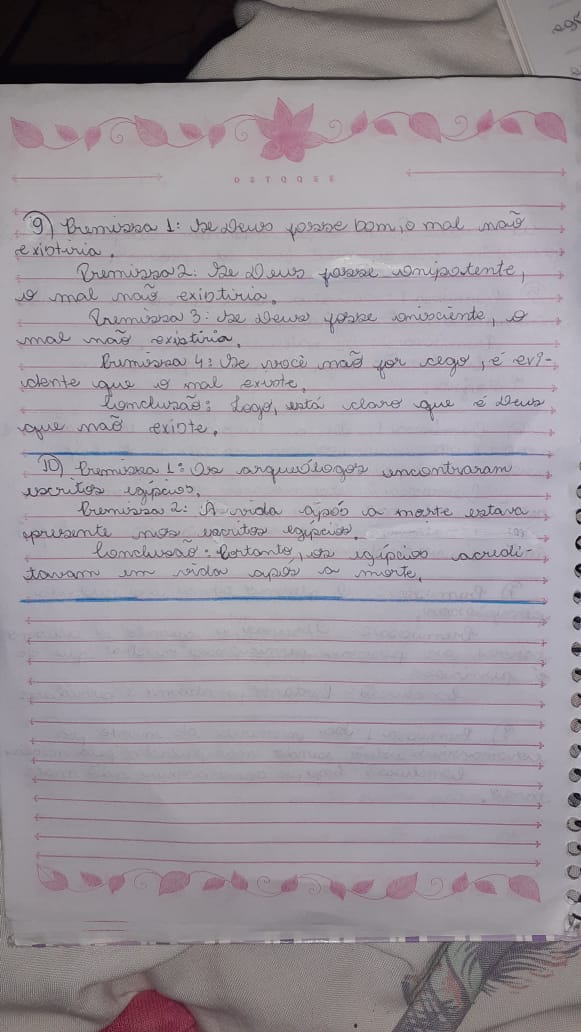 D S T Q Q S S
9) Premissa 1: Se Deus fosse bom, o mal não
existiria.
Premissa 2: Se Deus fosse onipotente,
o mal não existiria.
Premissa 3: Se Deus fosse onisciente, o
mal não existiria.
Premissa 4: Se você não for cego, é evi-
dente que o mal existe.
Conclusão: Logo, está claro que é Deus
que não existe.
10) Premissa 1: Os arqueólogos encontraram
escritos egípcios.
Premissa 2: A vida após a morte estava
presente nos escritos egípcios.
Conclusão: Portanto, os egípcios acredi-
tavam em vida após a morte.